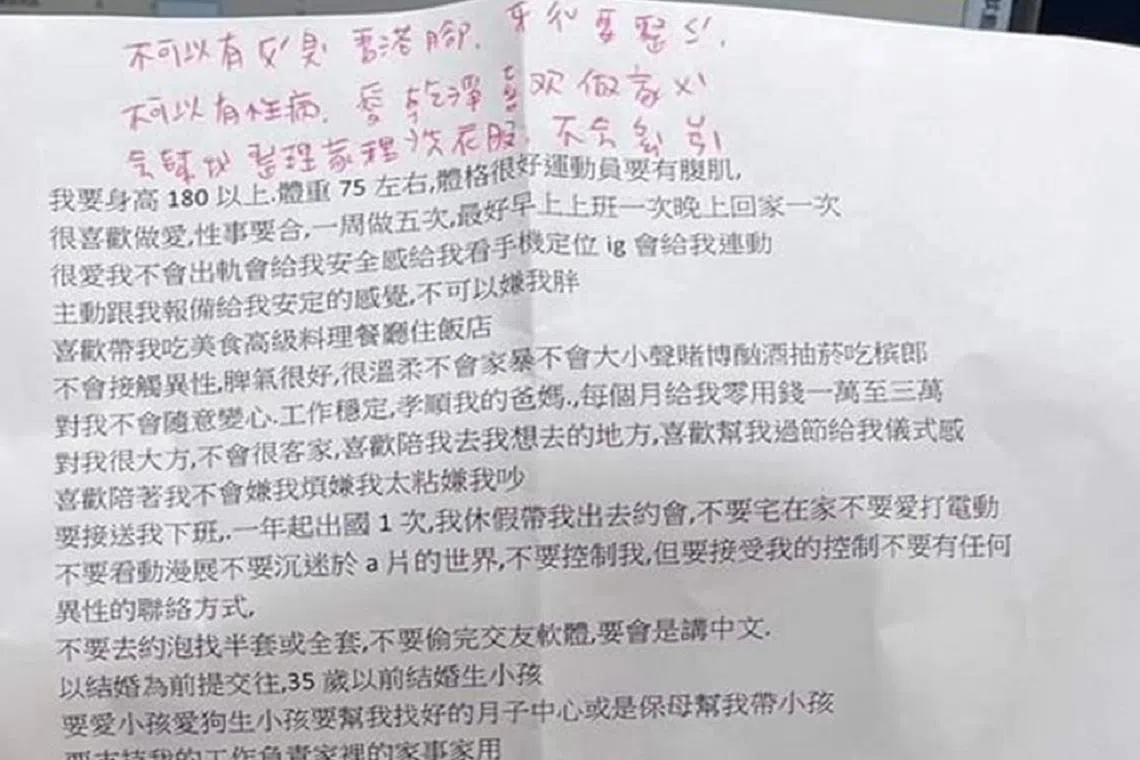 不可以有口臭 香港腳. 牙刈要整ㄑ.
不可以有性病. 愛乾淨喜欢做家ㄨ
会 整理家裡洗衣服. 不会
我要身高 180 以上.體重 75 左右,體格很好運動員要有腹肌,
很喜歡做愛,性事要合,一周做五次,最好早上上班一次晚上回家一次
很愛我不會出軌會給我安全感給我看手機定位 ig 會給我連動
主動跟我報備給我安定的感覺,不可以嫌我胖
喜歡帶我吃美食高級料理餐廳住飯店
不會接觸異性,脾氣很好,很溫柔不會家暴不會大小聲賭博酗酒抽菸吃檳郎
對我不會隨意變心.工作穩定,孝順我的爸媽.,每個月給我零用錢一萬至三萬
對我很大方,不會很客家,喜歡陪我去我想去的地方,喜歡幫我過節給我儀式感
喜歡陪著我不會嫌我煩嫌我太粘嫌我吵
要接送我下班,.一年起出國 1 次,我休假帶我出去約會,不要宅在家不要愛打電動
不要看動漫展不要沉迷於 a 片的世界,不要控制我,但要接受我的控制不要有任何
異性的聯絡方式,
不要去約泡找半套或全套,不要偷完交友軟體,要會是講中文.
以結婚為前提交往,35 歲以前結婚生小孩
要愛小孩愛狗生小孩要幫我找好的月子中心或是保母幫我帶小孩
要支持我的工作負責家裡的家事家用